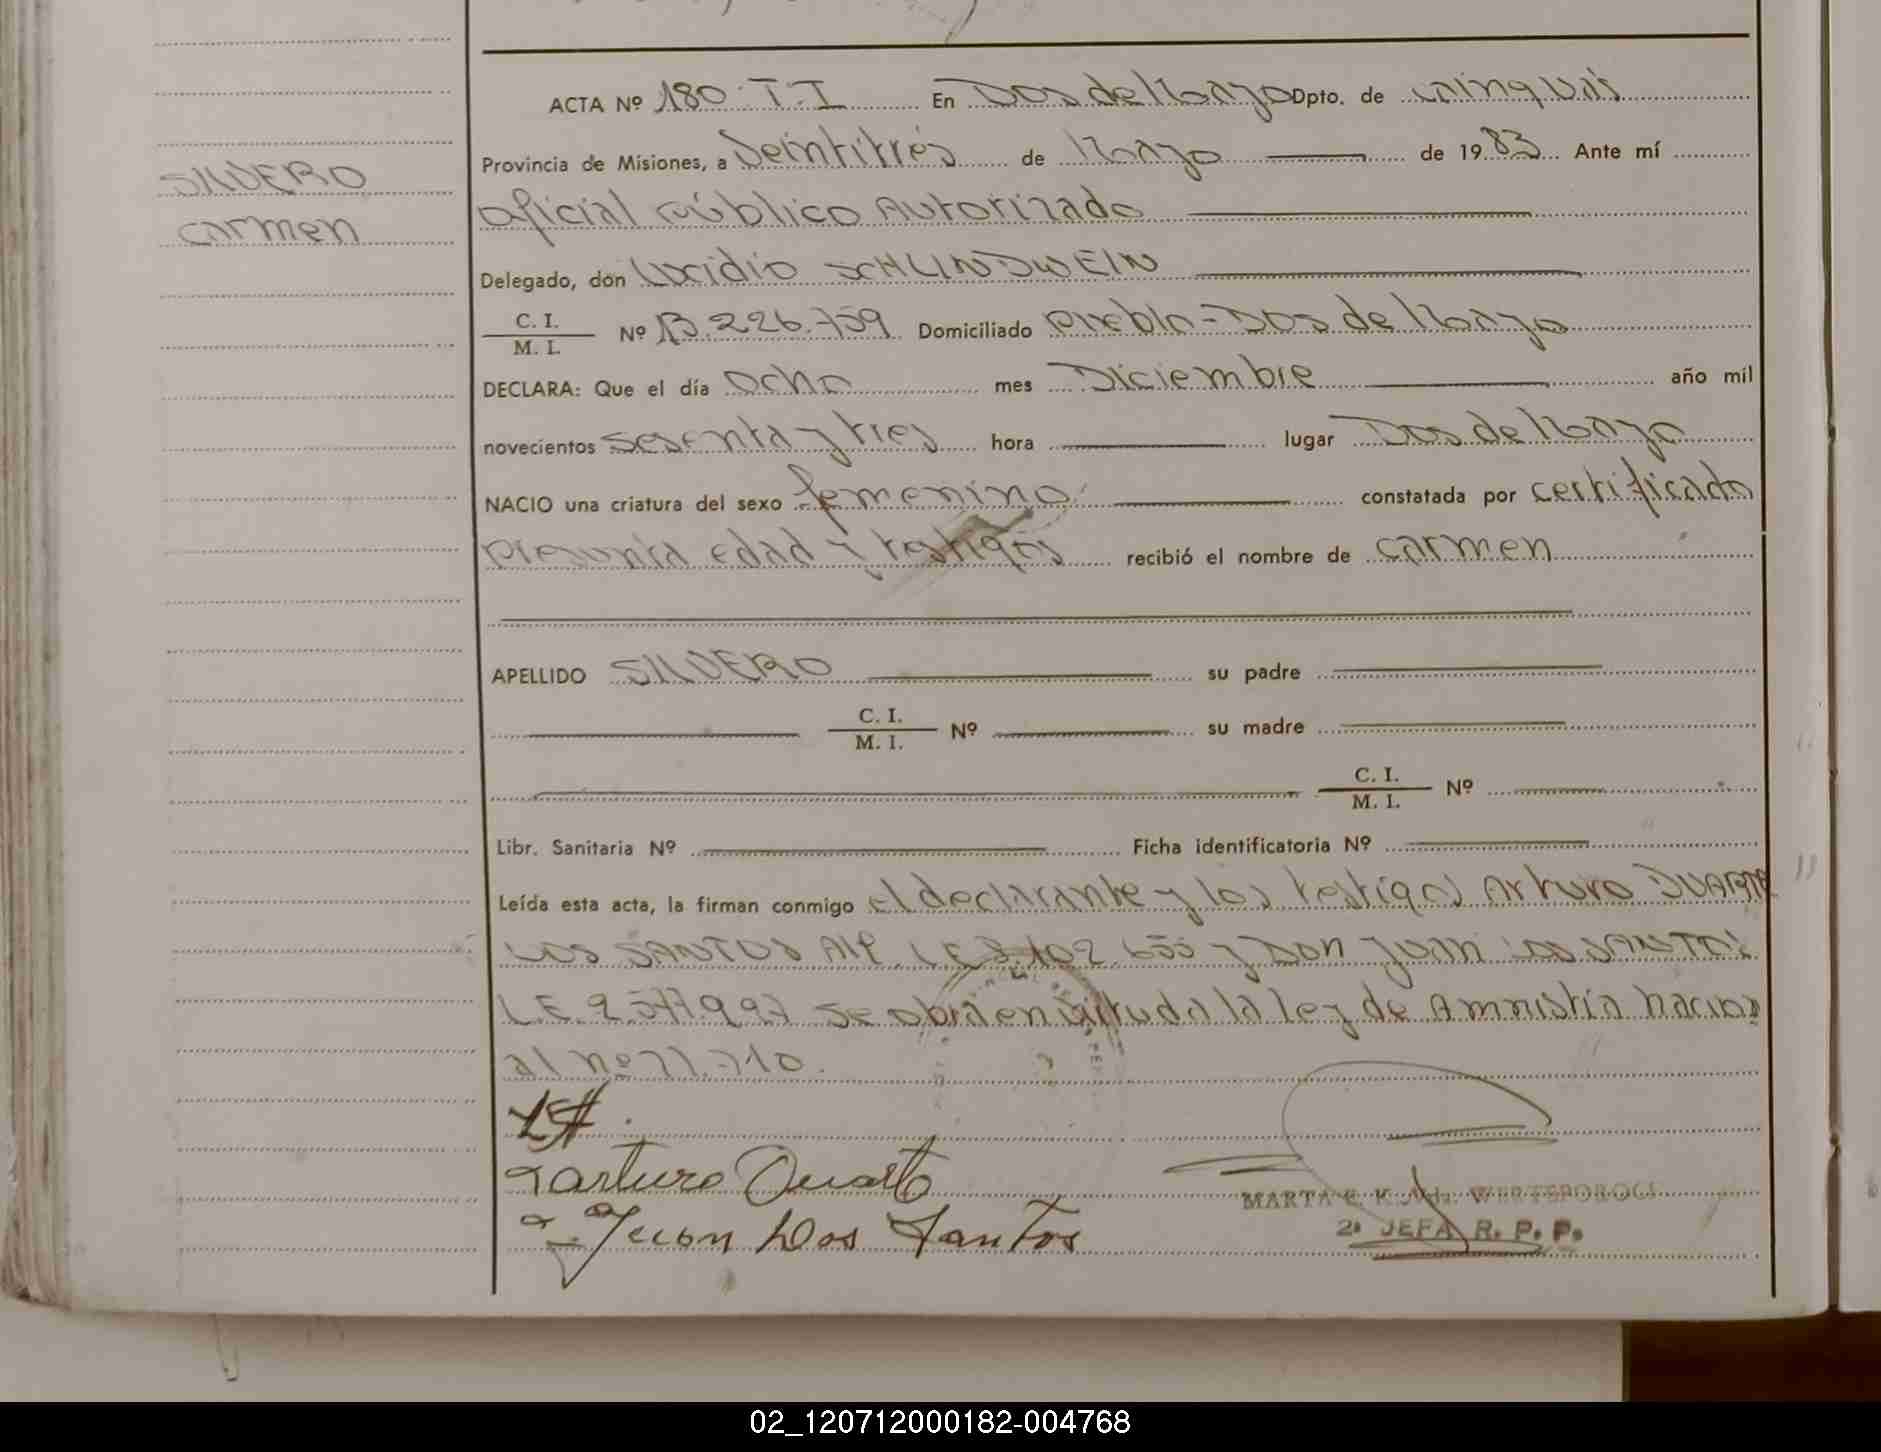 ACTA Nº 180 T.I En Dos de Mayo Dpto. de Cainguás
Provincia de Misiones, a Veintitrés de Mayo de 1983 Ante mí
oficial público Autorizado
SILVERO
Carmen
Delegado, don Lucidio SCHLINDWEIN
C. I.
M. I. Nº 13.226.759 Domiciliado Pueblo - Dos de Mayo
DECLARA: Que el día Ocho mes Diciembre año mil
novecientos sesenta y tres hora lugar Dos de Mayo
NACIO una criatura del sexo femenino constatada por certificado
presunta edad y testigos recibió el nombre de Carmen
APELLIDO SILVERO su padre
C. I.
M. I. Nº su madre
C. I.
M. I. Nº
Libr. Sanitaria Nº Ficha identificatoria Nº
Leída esta acta, la firman conmigo el declarante y los testigos Arturo DUARTE
DOS SANTOS M.I.P. L.E. 655 y Don Juan DOS SANTOS
L.E. se obra en virtud a la ley de Amnistía Nacion
al nº 22.710.
Arturo Duarte
Juan Dos Santos
MARTA E. K. WERTEPOROCH
2ª JEFA R. P. P.
02_120712000182-004768